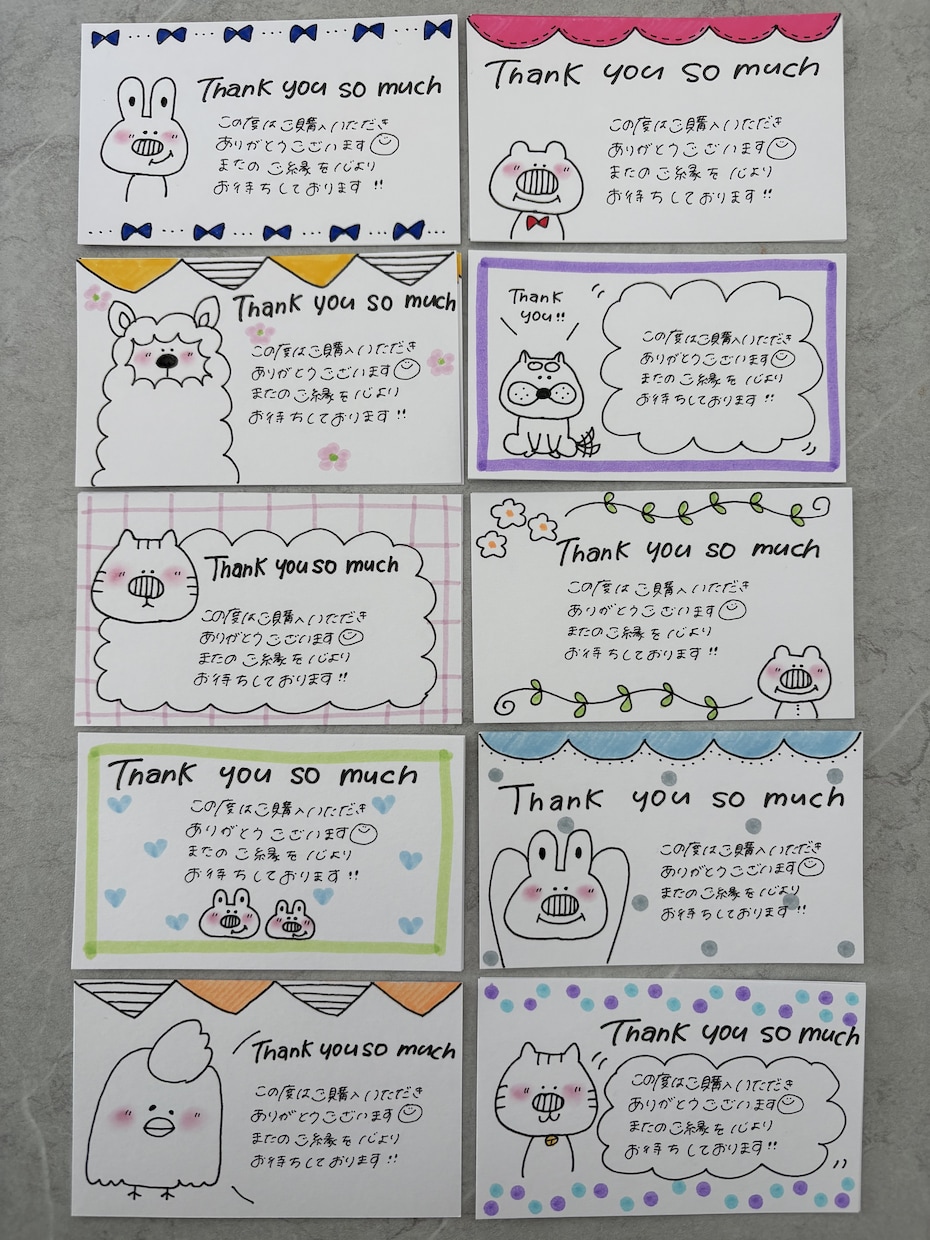 Thank you so much
この度はご購入いただき
ありがとうございます
またのご縁を心より
お待ちしております!!
Thank you so much
この度はご購入いただき
ありがとうございます
またのご縁を心より
お待ちしております!!
Thank you so much
この度はご購入いただき
ありがとうございます
またのご縁を心より
お待ちしております!!
Thank
you!!
この度はご購入いただき
ありがとうございます
またのご縁を心より
お待ちしております!!
Thank you so much
この度はご購入いただき
ありがとうございます
またのご縁を心より
お待ちしております!!
Thank you so much
この度はご購入いただき
ありがとうございます
またのご縁を心より
お待ちしております!!
Thank you so much
この度はご購入いただき
ありがとうございます
またのご縁を心より
お待ちしております!!
Thank you so much
この度はご購入いただき
ありがとうございます
またのご縁を心より
お待ちしております!!
Thank you so much
この度はご購入いただき
ありがとうございます
またのご縁を心より
お待ちしております!!
Thank you so much
この度はご購入いただき
ありがとうございます
またのご縁を心より
お待ちしております!!